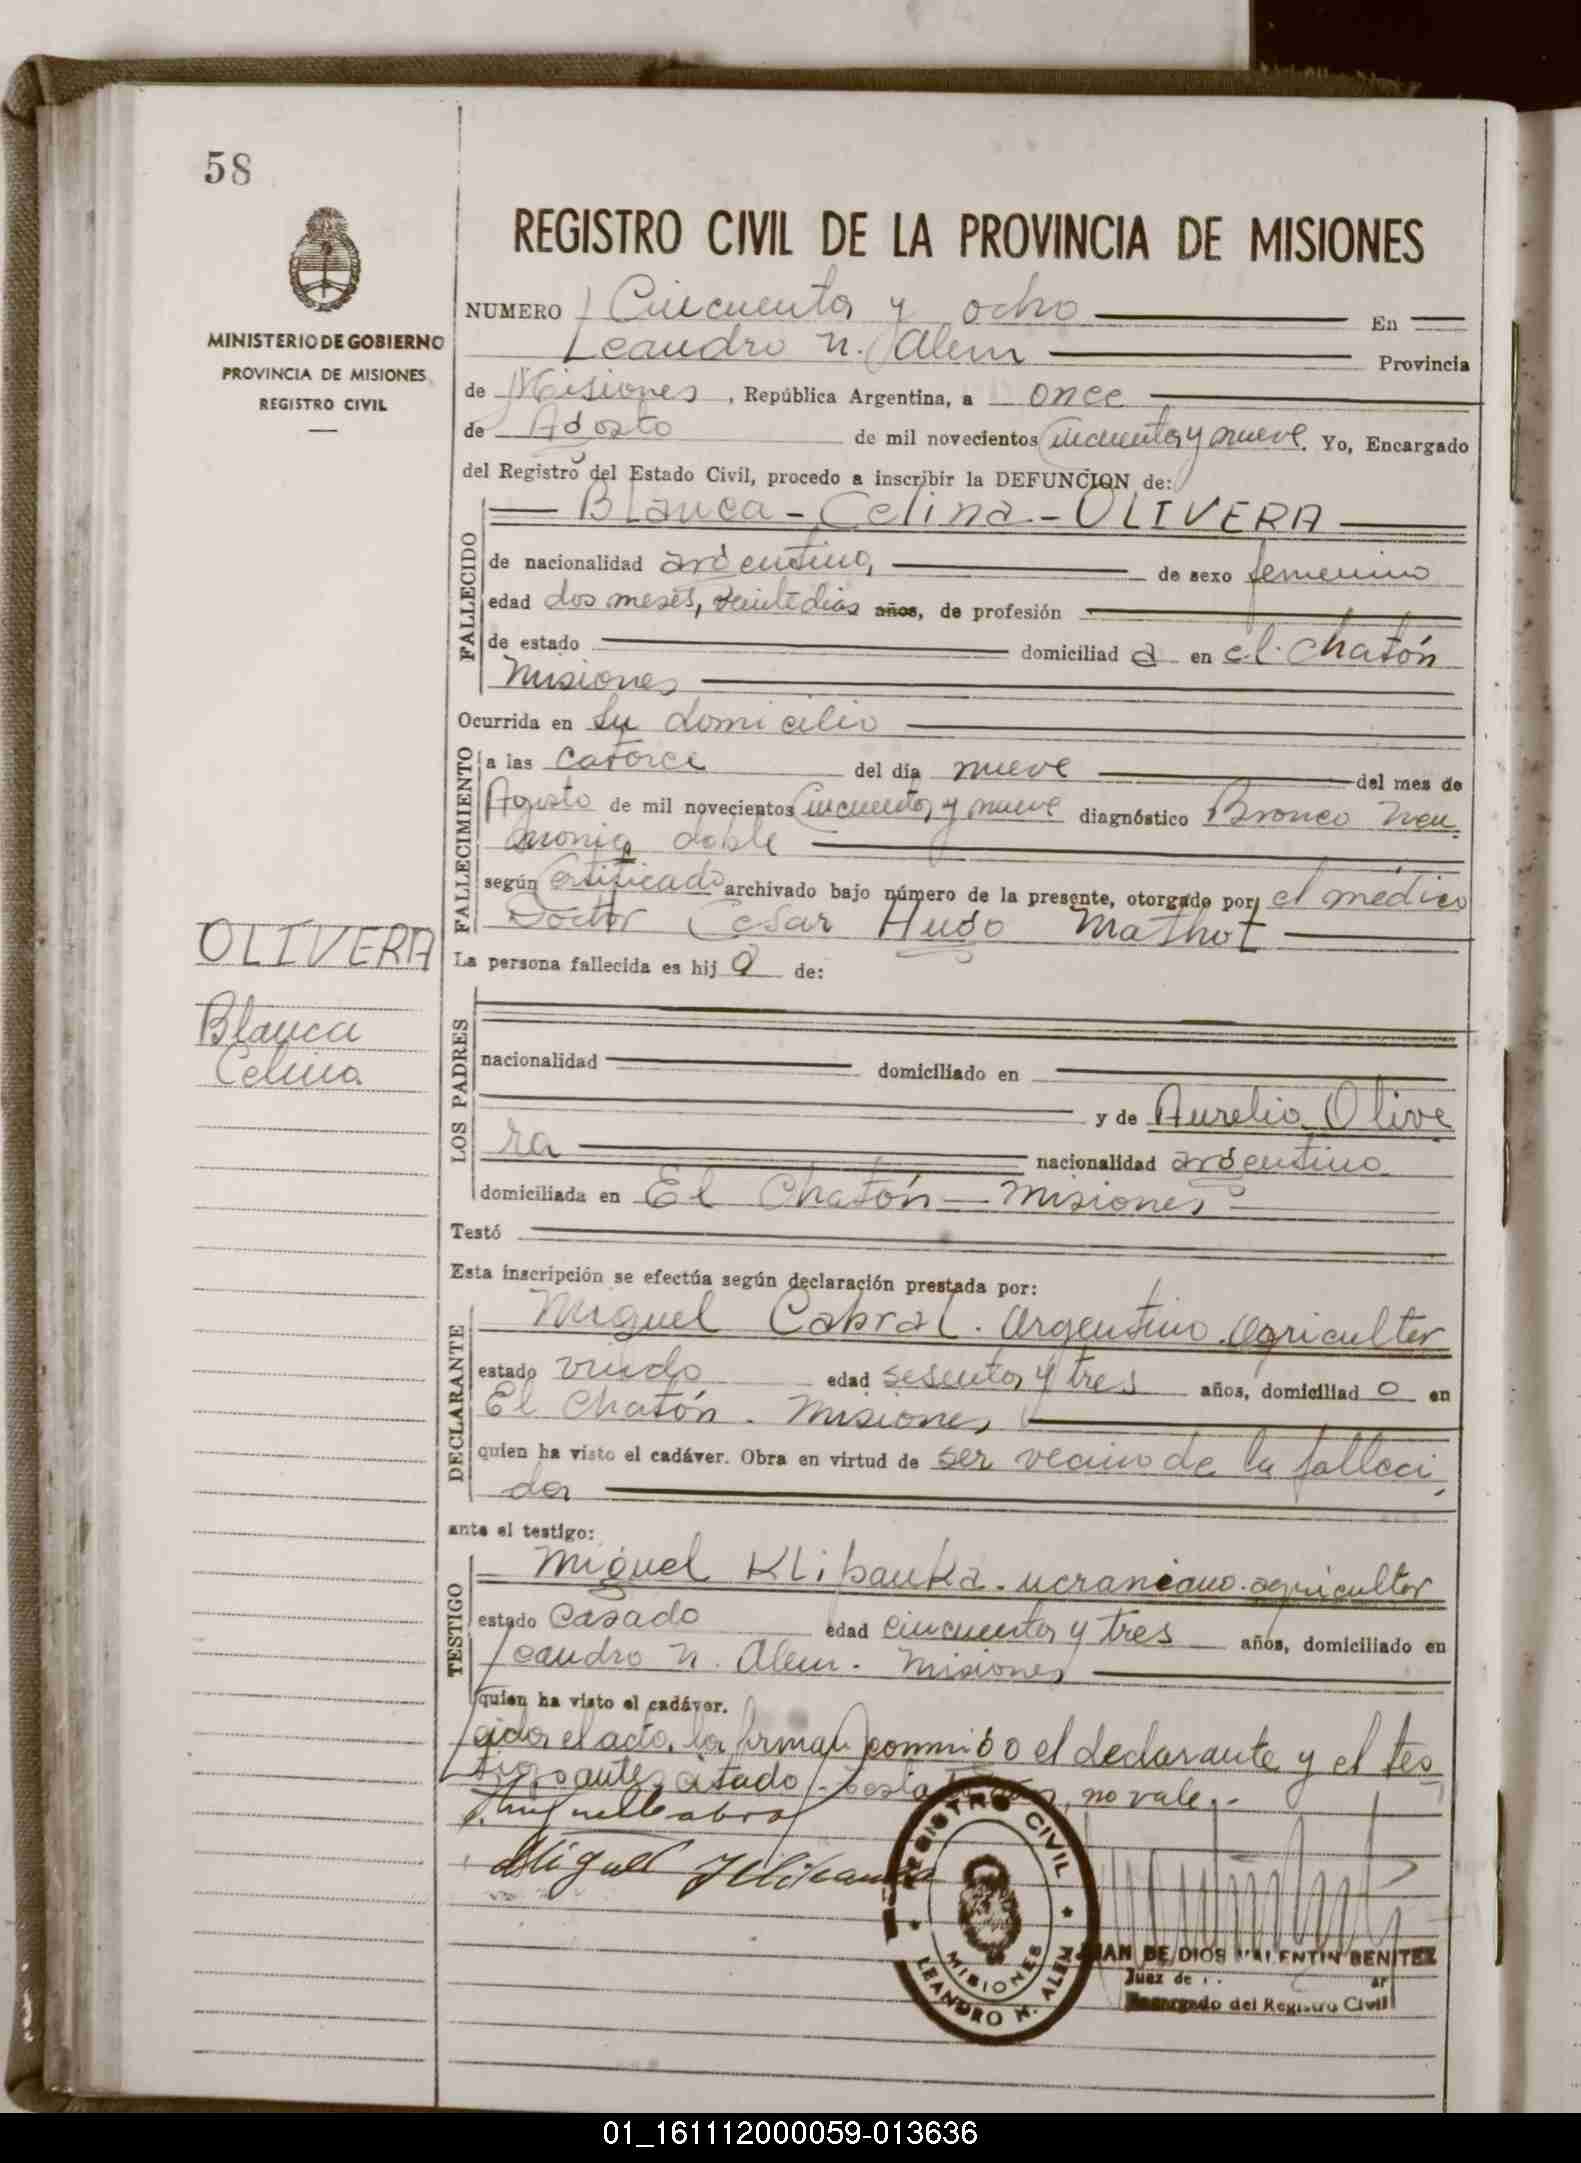 58
REGISTRO CIVIL DE LA PROVINCIA DE MISIONES
MINISTERIO DE GOBIERNO
PROVINCIA DE MISIONES
REGISTRO CIVIL
NUMERO Cincuenta y ocho En
Leandro N. Alem Provincia
de Misiones, República Argentina, a once
de Agosto de mil novecientos cincuenta y nueve. Yo, Encargado
del Registro del Estado Civil, procedo a inscribir la DEFUNCION de:
Blanca - Celina - OLIVERA
FALLECIDO
de nacionalidad argentina, de sexo femenino
edad dos meses, veinte dias años, de profesión
de estado domiciliad a en el Chatón
Misiones
Ocurrida en su domicilio
FALLECIMIENTO
a las catorce del día nueve del mes de
Agosto de mil novecientos cincuenta y nueve diagnóstico Bronco neu
monia doble
según Certificado archivado bajo número de la presente, otorgado por el médico
Doctor Cesar Hugo Mathot
OLIVERA
Blanca
Celina
La persona fallecida es hij a de:
LOS PADRES
nacionalidad domiciliado en
y de Aurelia Olive
ra nacionalidad argentina
domiciliada en El Chatón - Misiones
Testó
Esta inscripción se efectúa según declaración prestada por:
DECLARANTE
Miguel Cabral. Argentino. agricultor
estado viudo edad sesenta y tres años, domiciliad o en
El Chatón. Misiones
quien ha visto el cadáver. Obra en virtud de ser vecino de la falleci
da
ante el testigo:
TESTIGO
Miguel Klipauka. ucraniano. agricultor
estado casado edad cincuenta y tres años, domiciliado en
Leandro N. Alem. Misiones
quien ha visto el cadáver.
Leida el acta, la firman conmigo el declarante y el tes
tigo antes citado. no vale.-
Miguel Cabral
Miguel
REGISTRO CIVIL
MISIONES
LEANDRO N. ALEM
JUAN DE DIOS VALENTIN BENITEZ
Juez de
Encargado del Registro Civil
01_161112000059-013636